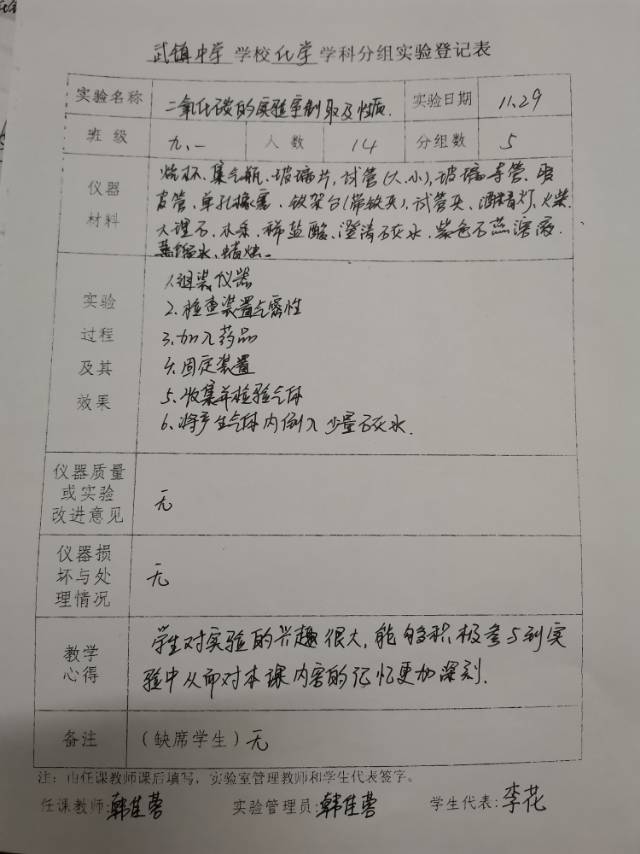 武镇中学 学校 化学 学科分组实验登记表
实验名称 二氧化碳的实验室制取及性质. 实验日期 11.29
班 级 九.一 人 数 14 分组数 5
仪器 材料 烧杯、集气瓶、玻璃片,试管(大、小),玻璃导管、胶
皮管、单孔橡塞、铁架台(带铁夹),试管夹、酒精灯,火柴
大理石、水、稀盐酸、澄清石灰水、紫色石蕊溶液
蒸馏水、蜡烛。
实验 过程 及其 效果 1.组装仪器
2.检查装置气密性
3.加入药品
4.固定装置
5.收集并检验气体
6.将产生气体内倒入少量石灰水.
仪器质量 或实验 改进意见 无
仪器损 坏与处 理情况 无
教学 心得 学生对实验的兴趣很大,能够积极参与到实
验中从而对本课内容的记忆更加深刻.
备注 (缺席学生)无
注:由任课教师课后填写,实验室管理教师和学生代表签字。
任课教师:韩佳蓉 实验管理员:韩佳蓉 学生代表:李花